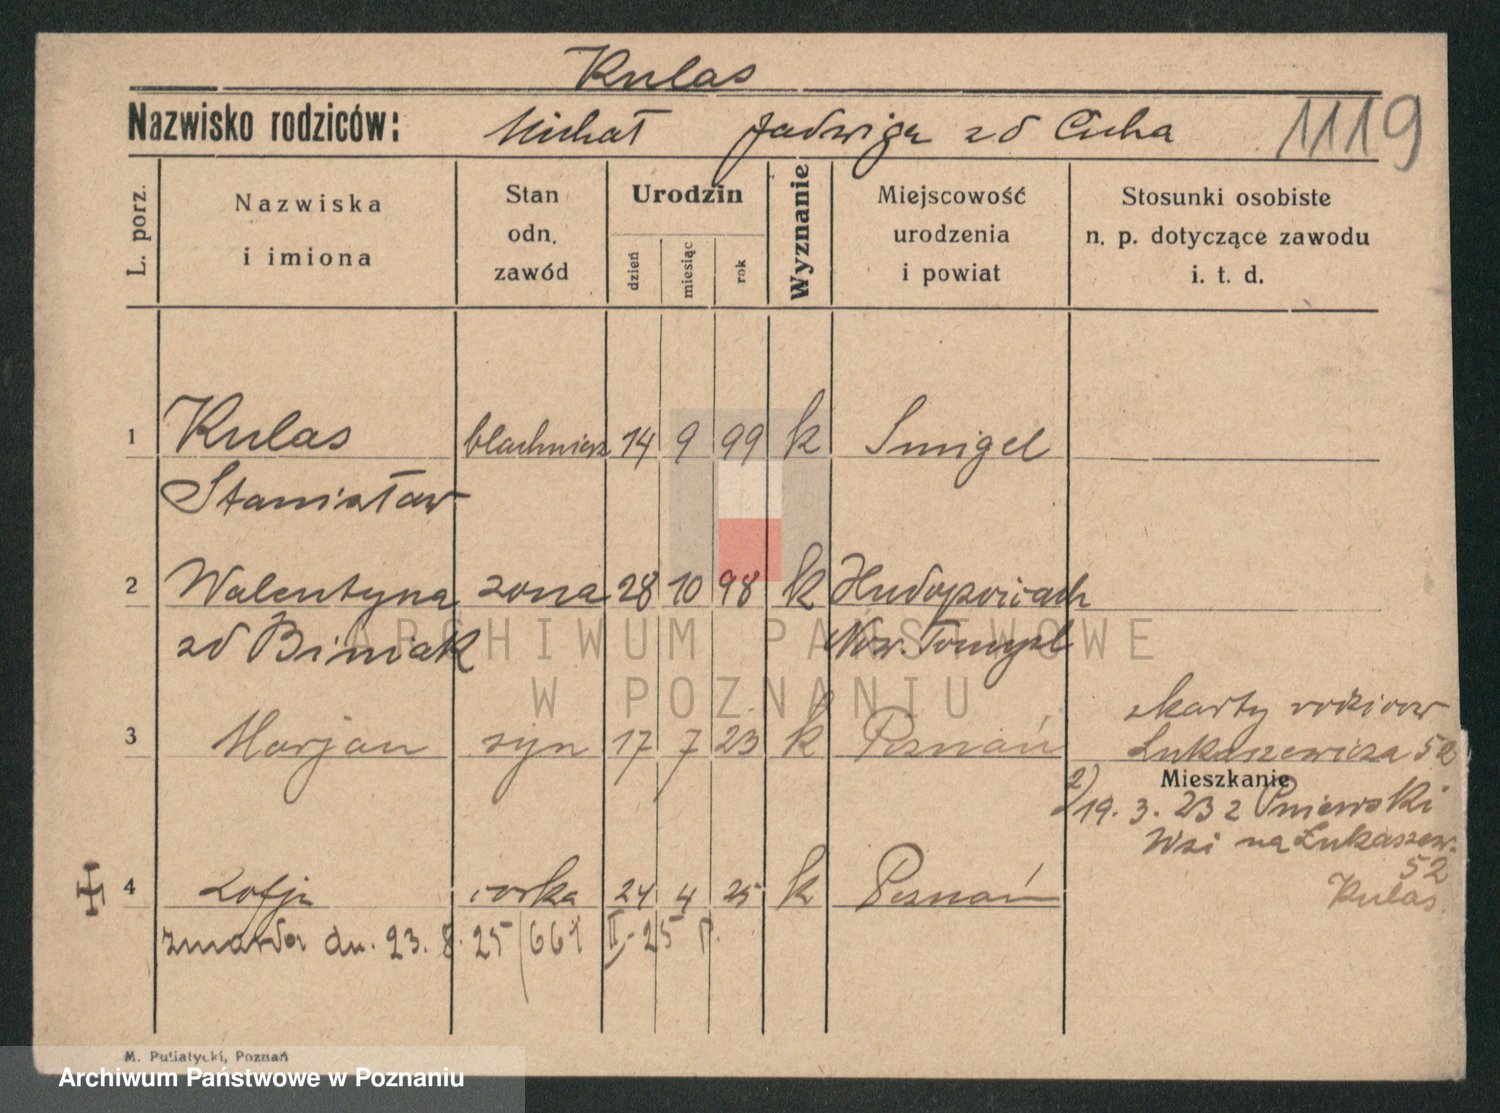 Kulas
Nazwisko rodziców: Michał Jadwiga zd Cicha 1119
L. porz. Nazwiska i imiona Stan odn. zawód Urodzin dzień miesiąc rok Wyznanie Miejscowość urodzenia i powiat Stosunki osobiste n. p. dotyczące zawodu i. t. d.
1 Kulas blachnierz 14 9 99 k Smigel
Stanisław
2 Walentyna żona 28 10 98 k
zd Biniak Now. Tomysl
z karty rodzicow
3 Marjan syn 17 7 23 k Poznań Łukaszewicza 52
Mieszkanie
2) 19. 3. 23 z Pniewski
Wsi na Łukaszew.
52
4 Zofja corka 24 4 25 k Poznań Kulas.
zmarła dn. 23. 8. 25 661 II-25 P.
ARCHIWUM PAŃSTWOWE
W POZNANIU
M. Putiatycki, Poznań
Archiwum Państwowe w Poznaniu